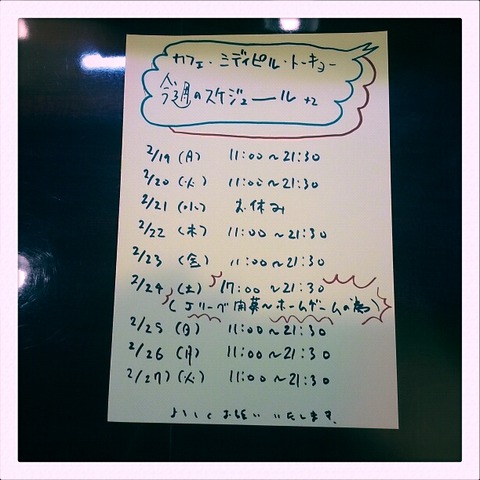 カフェ・ミディピル・トーキョー
今週のスケジュール +2
2/19 (月) 11:00~21:30
2/20 (火) 11:00~21:30
2/21 (水) お休み
2/22 (木) 11:00~21:30
2/23 (金) 11:00~21:30
2/24 (土) 17:00~21:30
(Jリーグ開幕~ホームゲームの為)
2/25 (日) 11:00~21:30
2/26 (月) 11:00~21:30
2/27 (火) 11:00~21:30
よろしくお願いいたします。